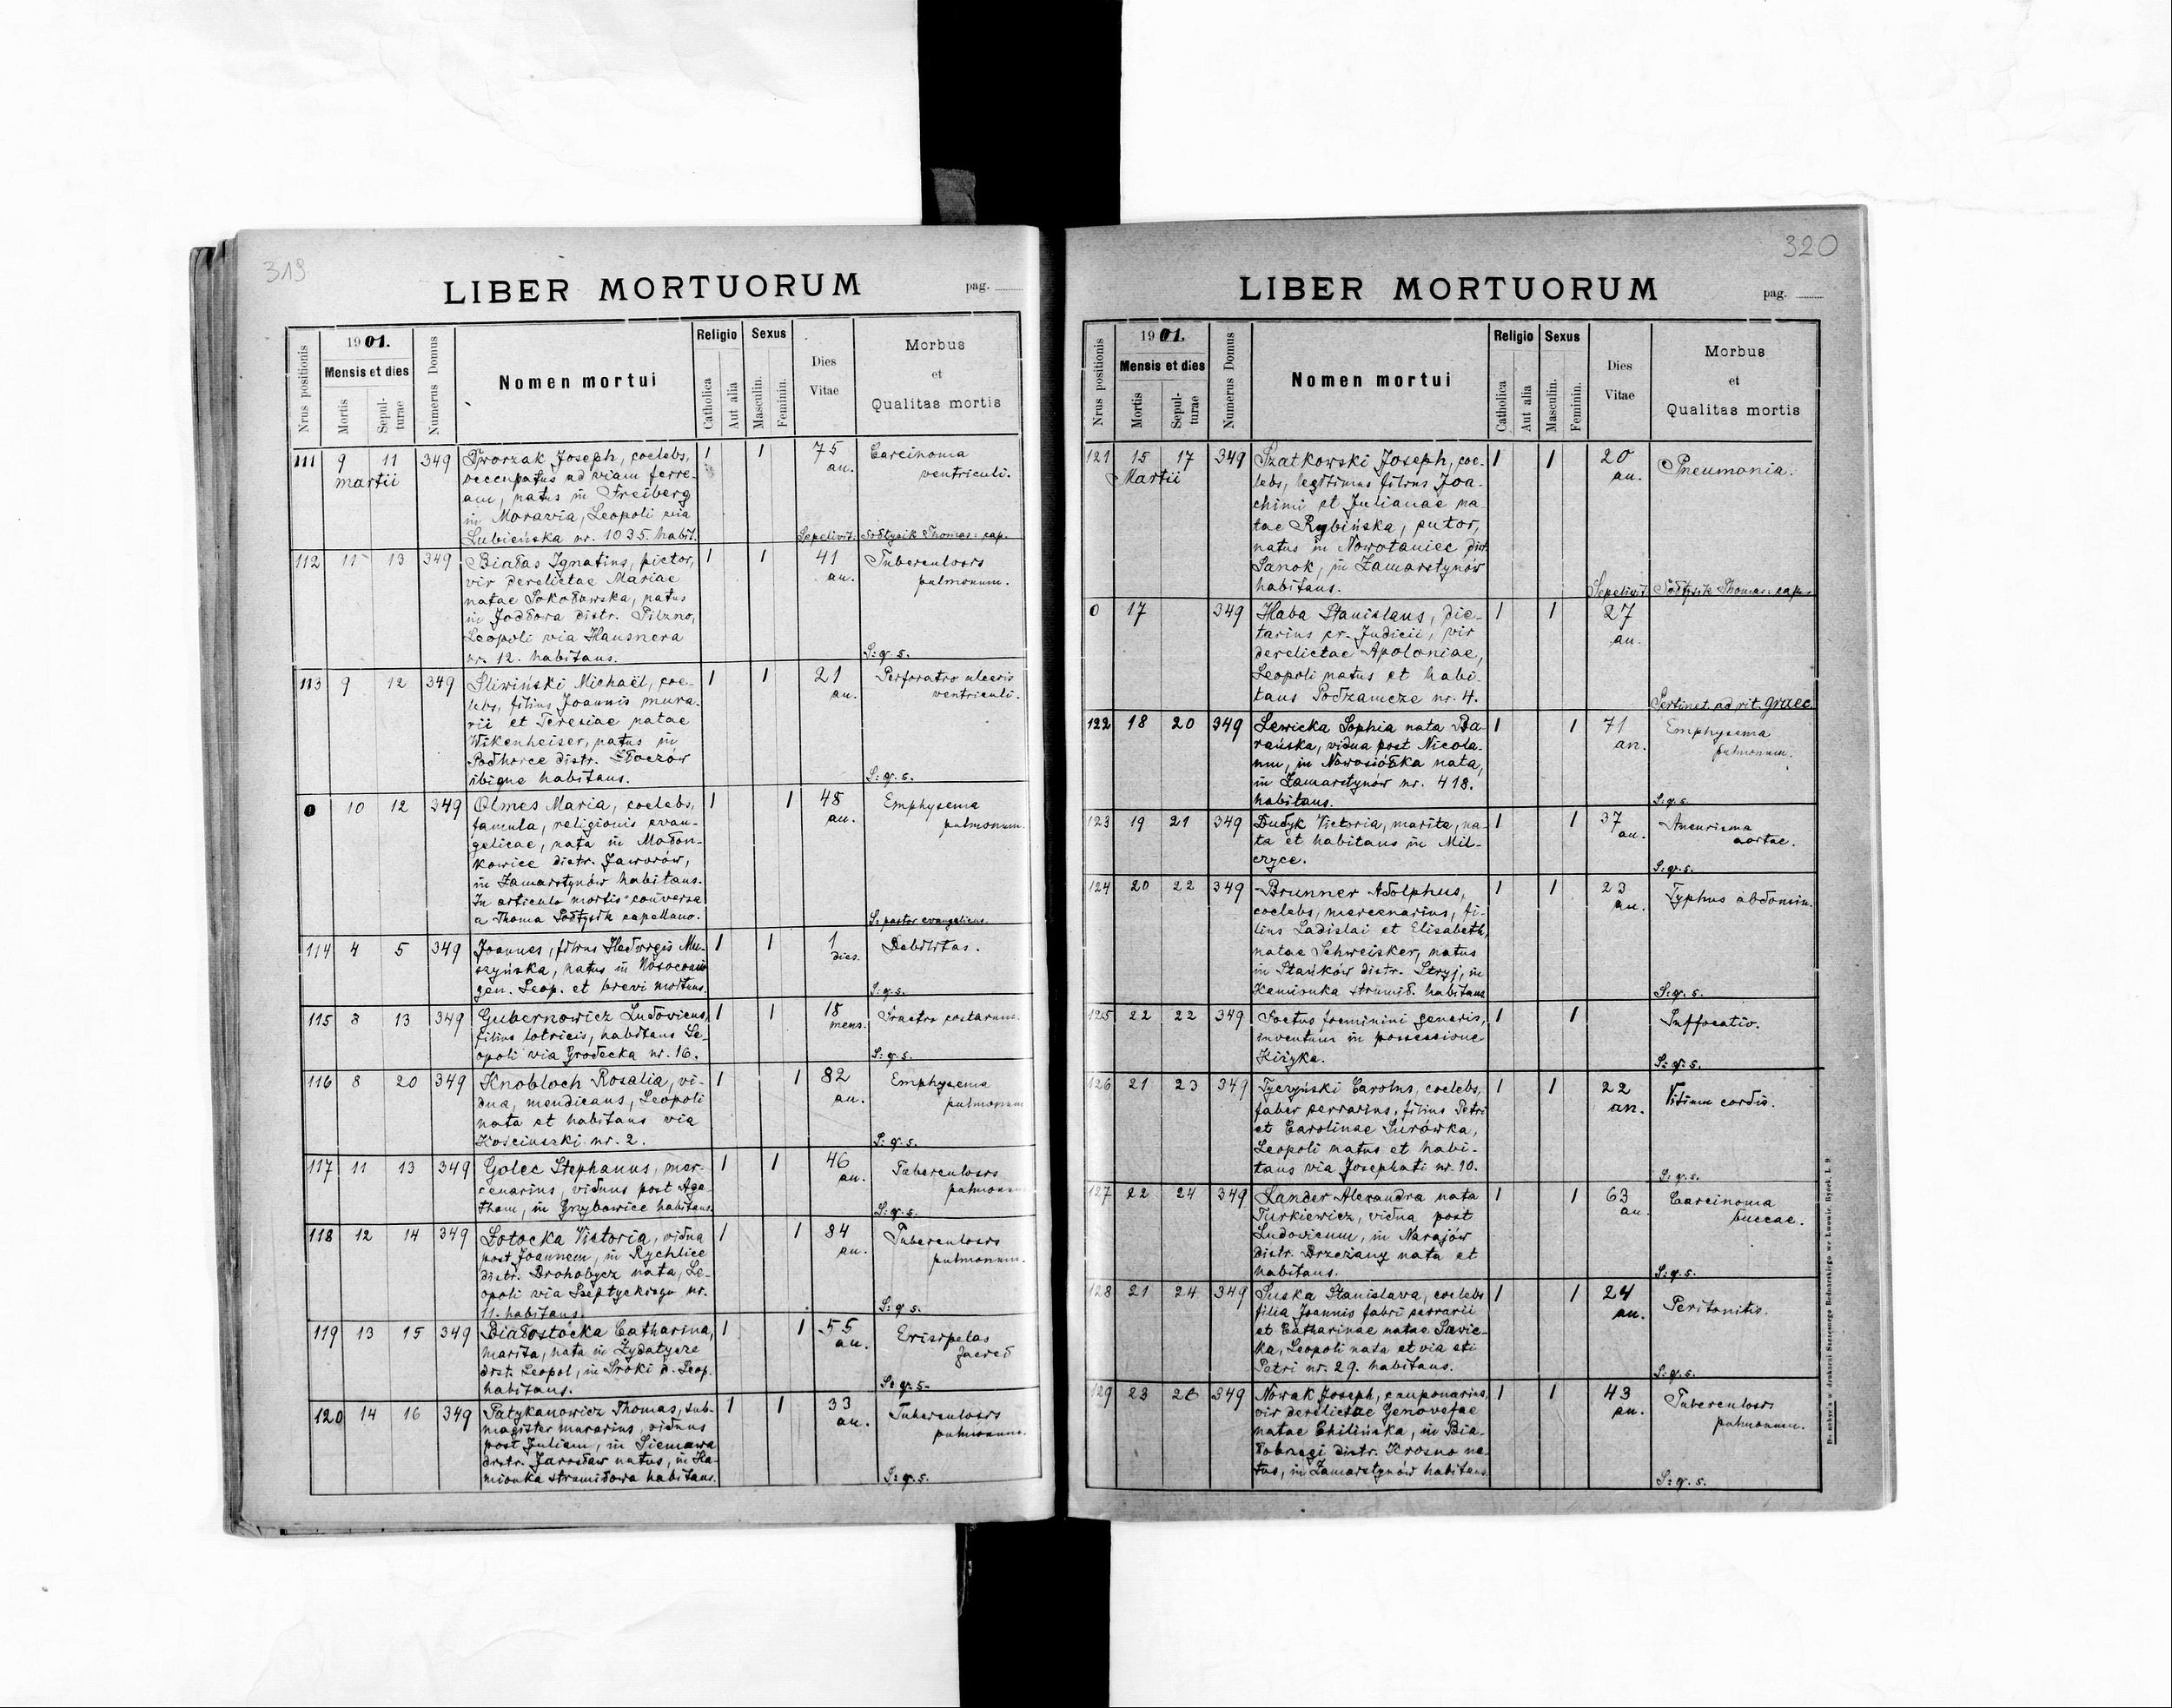 319
LIBER MORTUORUM
pag.
Nrus positionis
1901.
Mensis et dies
Mortis
Sepulturae
Numerus Domus
Nomen mortui
Religio
Catholica
Aut alia
Sexus
Masculin.
Feminin.
Dies
Vitae
Morbus
et
Qualitas mortis
111 9 11 349 Tworzak Joseph, coelebs, 1 1 75 Carcinoma
martii occupatus ad viam ferre- an. ventriculi.
am, natus in Freiberg
in Moravia, Leopoli via
Lubieńska nr. 1035. habit. Sepelivit: Sołtysik Thomas: cap.
112 11 13 349 Białas Ignatius, pictor, 1 1 41 Tuberculosis
vir derelictae Mariae an. pulmonum.
natae Sokołowska, natus
in Jodłora distr. Pilzno,
Leopoli via Hausnera
nr. 12. habitans. S: q. s.
113 9 12 349 Śliwiński Michaël, coe- 1 1 21 Perforatio ulceris
lebs, filius Joannis mura- an. ventriculi.
rii et Teresiae natae
Wikenheiser, natus in
Podhorce distr. Złoczów
ibique habitans. S: q. s.
0 10 12 349 Olmes Maria, coelebs, 1 1 48 Emphysema
famula, religionis evan- an. pulmonum.
gelicae, nata in Mołoń-
kowice distr. Jaworów,
in Zamarstynów habitans.
In articulo mortis conversa
a Thoma Sołtysik capellano. S: pastor evangelicus.
114 4 5 349 Joannes, filius Hedvigis Mu- 1 1 1 Debilitas.
szyńska, natus in Nosocomio dies.
gen. Leop. et brevi mortuus. S: q. s.
115 8 13 349 Gubernowicz Ludovicus, 1 1 18 Fractio costarum.
filius lotricis, habitans Le- mens.
opoli via Grodecka nr. 16. S: q. s.
116 8 20 349 Knobloch Rosalia, vi- 1 1 82 Emphysema
dua, mendicans, Leopoli an. pulmonum
nata et habitans via
Kościuszki nr. 2. S: q. s.
117 11 13 349 Golec Stephanus, mer- 1 1 46 Tuberculosis
cenarius, viduus post Aga- an. pulmonum
tham, in Grzybowice habitans. S: q. s.
118 12 14 349 Łotocka Victoria, vidua 1 1 84 Tuberculosis
post Joannem, in Rychlice an. pulmonum.
distr. Drohobycz nata, Le-
opoli via Szeptyckiego nr.
11. habitans. S: q. s.
119 13 15 349 Białostocka Catharina, 1 1 55 Erisipelas
marita, nata in Żydatycze an. faciei
distr. Leopol, in Sroki d. Leop.
habitans. S: q. s.
120 14 16 349 Patykanowicz Thomas, sub- 1 1 33 Tuberculosis
magister murarius, viduus an. pulmonum.
post Juliam, in Sieniawa
distr. Jarosław natus, in Ka-
mionka strumiłowa habitans. S: q. s.
320
LIBER MORTUORUM
pag.
Nrus positionis
1901.
Mensis et dies
Mortis
Sepulturae
Numerus Domus
Nomen mortui
Religio
Catholica
Aut alia
Sexus
Masculin.
Feminin.
Dies
Vitae
Morbus
et
Qualitas mortis
121 15 17 349 Szatkowski Joseph, coe- 1 1 20 Pneumonia.
Martii lebs, legitimus filius Joa- an.
chimi et Julianae na-
tae Rybińska, sutor,
natus in Nowotaniec distr.
Sanok, in Zamarstynów
habitans. Sepelivit: Sołtysik Thomas: cap.
0 17 349 Haba Stanislaus, die- 1 1 27
tarius cr. Judicii, vir an.
derelictae Apoloniae,
Leopoli natus et habi-
tans Podzamcze nr. 4. Pertinet ad rit. graec.
122 18 20 349 Lewicka Sophia nata Ba- 1 1 71 Emphysema
rańska, vidua post Nicola- an. pulmonum.
um, in Nowosiółka nata,
in Zamarstynów nr. 418.
habitans. S: q. s.
123 19 21 349 Dudyk Victoria, marita, na- 1 1 37 Aneurisma
ta et habitans in Mil- an. aortae.
czyce. S: q. s.
124 20 22 349 Brunner Adolphus, 1 1 23 Typhus abdomin.
coelebs, mercenarius, fi- an.
lius Ladislai et Elisabeth,
natae Schweisker, natus
in Stańków distr. Stryj, in
Kamionka strumił. habitans S: q. s.
125 22 22 349 Foetus foeminini generis, 1 1 Suffocatio.
inventum in possessione
Kiżyka. S: q. s.
126 21 23 349 Tyczyński Carolus, coelebs, 1 1 22 Vitium cordis.
faber serrarius, filius Petri an.
et Carolinae Surówka,
Leopoli natus et habi-
tans via Josephati nr. 10. S: q. s.
127 22 24 349 Lander Alexandra nata 1 1 63 Carcinoma
Turkiewicz, vidua post an. buccae.
Ludovicum, in Narajów
distr. Brzeżany nata et
habitans. S: q. s.
128 21 24 349 Suska Stanislava, coelebs 1 1 24 Peritonitis.
filia Joannis fabri serrarii an.
et Catharinae natae Sawic-
ka, Leopoli nata et via sti
Petri nr. 29. habitans. S: q. s.
129 23 26 349 Nowak Joseph, cauponarius, 1 1 43 Tuberculosis
vir derelictae Genovefae an. pulmonum.
natae Chilińska, in Bia-
łobrzegi distr. Krosno na-
tus, in Zamarstynów habitans. S: q. s.